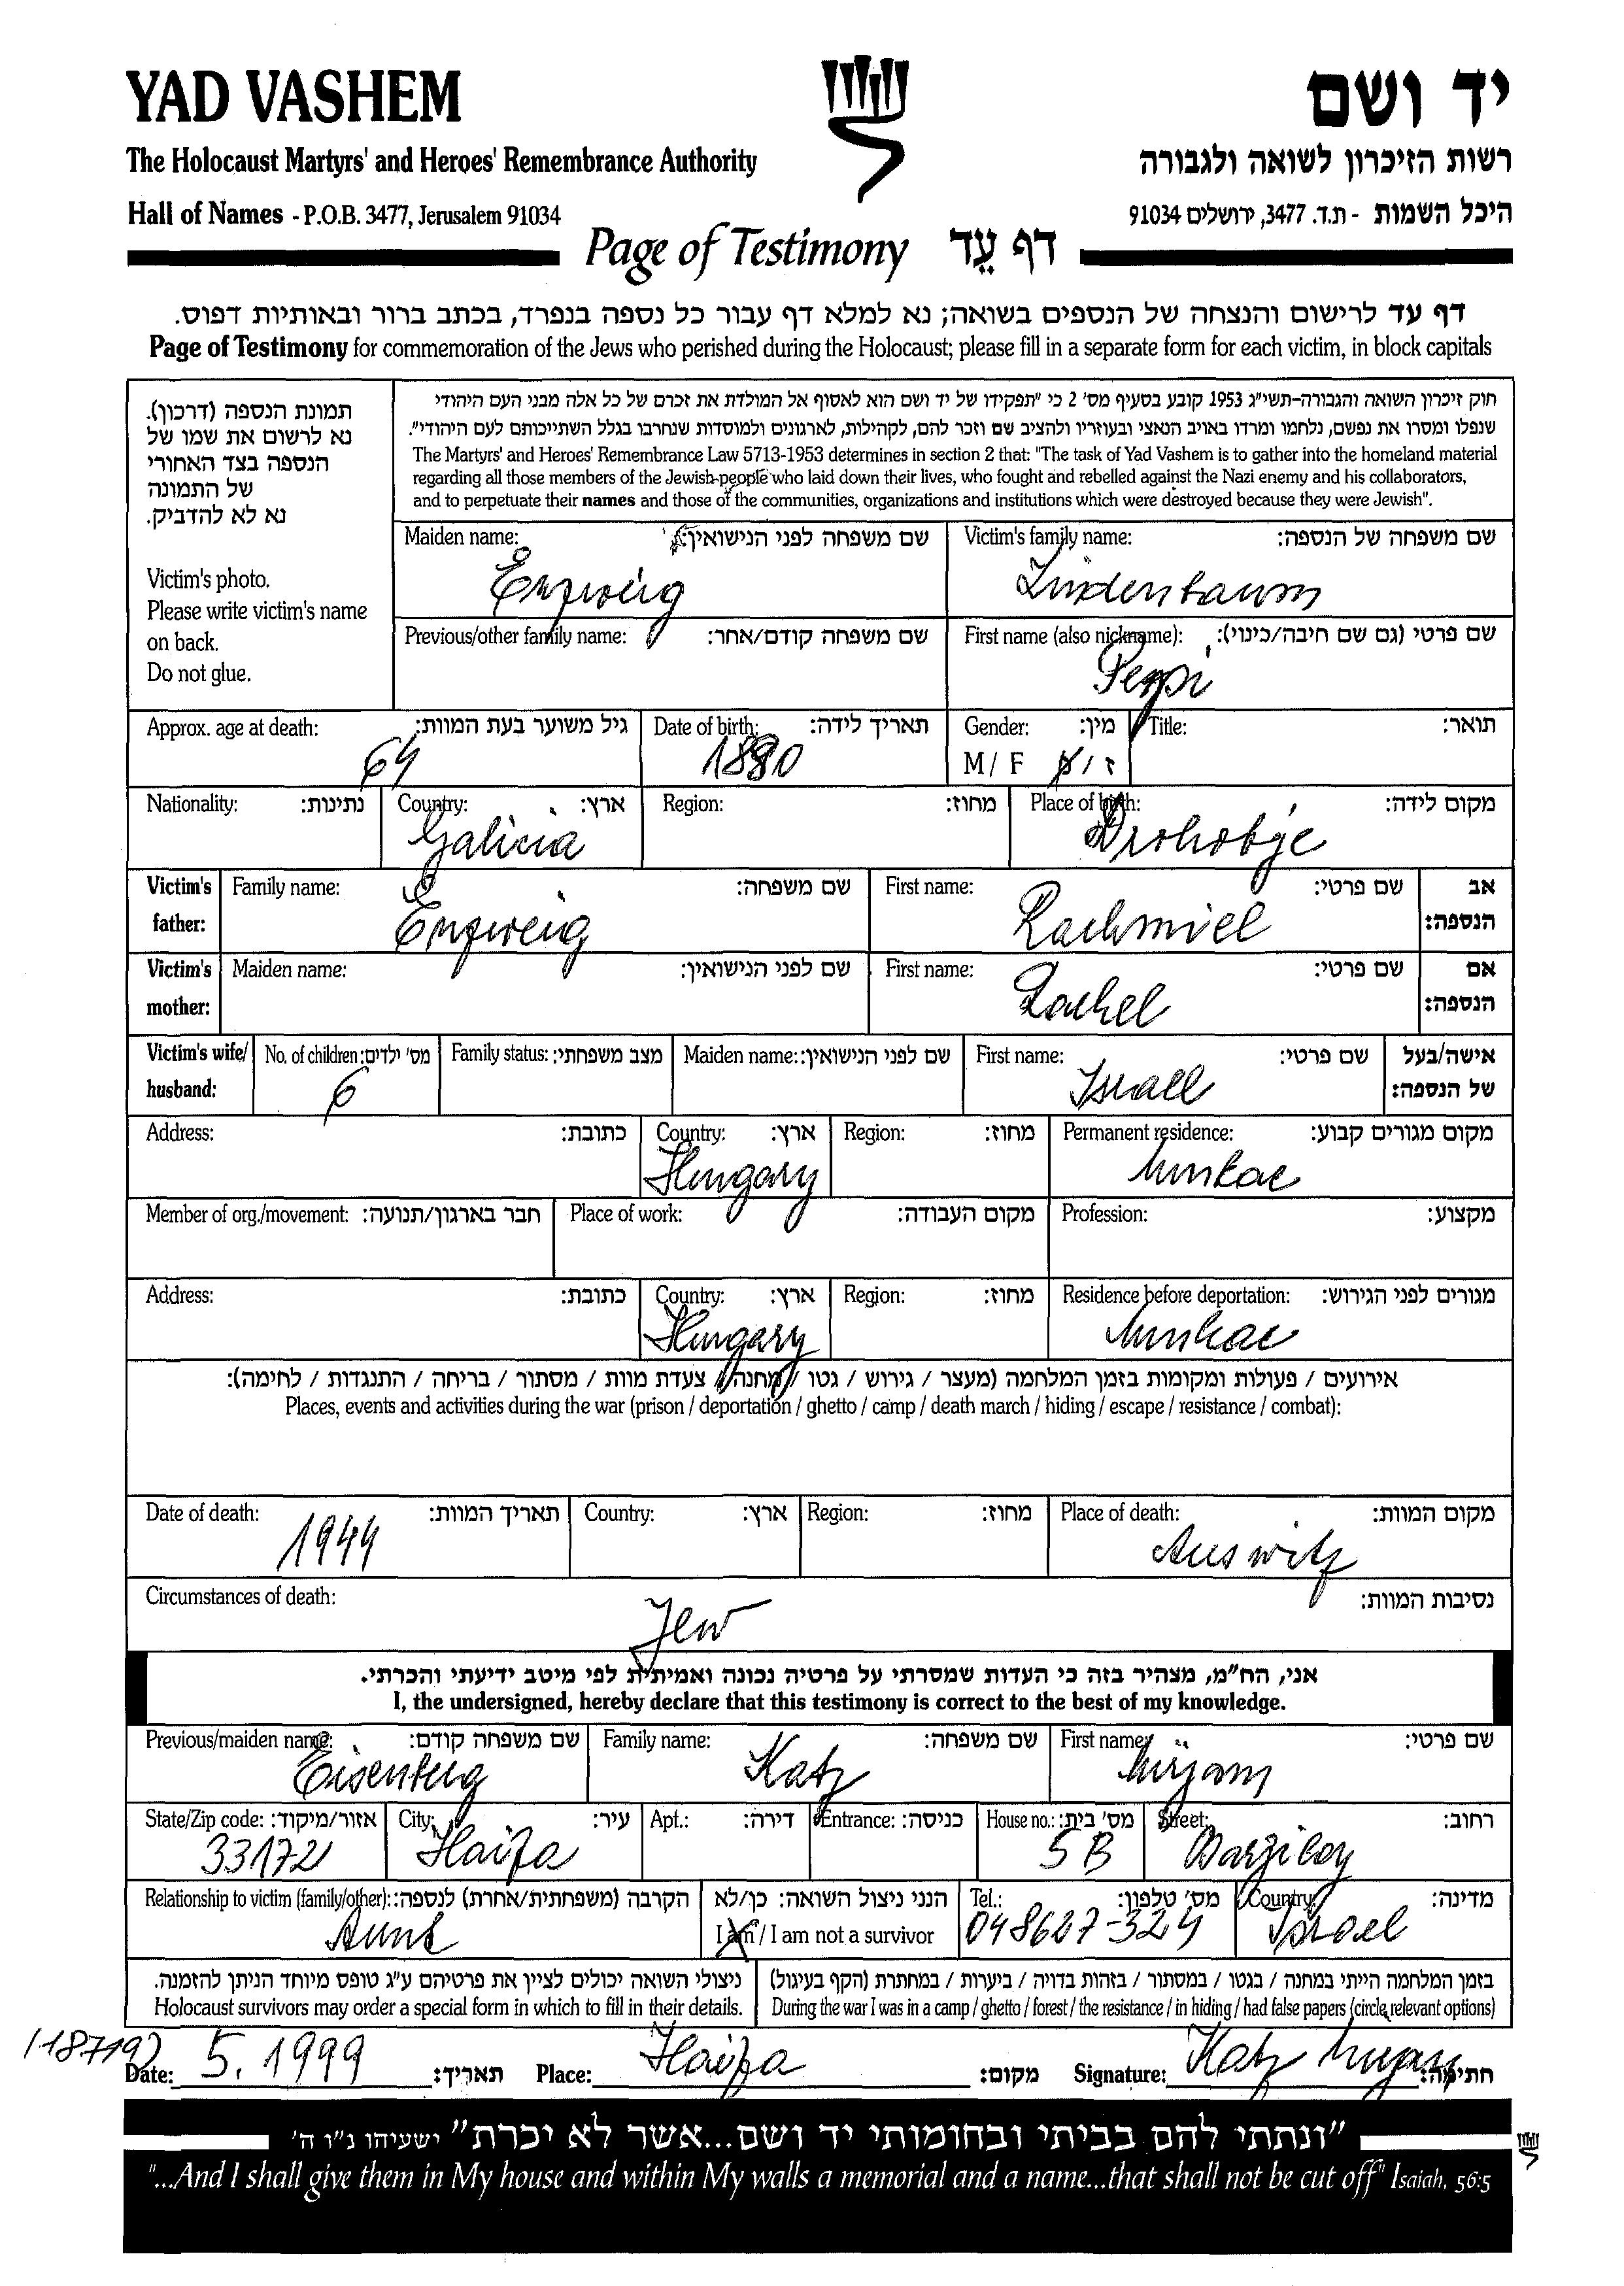 YAD VASHEM
יד ושם
The Holocaust Martyrs' and Heroes' Remembrance Authority
רשות הזיכרון לשואה ולגבורה
Hall of Names - P.O.B. 3477, Jerusalem 91034
היכל השמות - ת.ד. 3477, ירושלים 91034
Page of Testimony דף עֵד
דף עד לרישום והנצחה של הנספים בשואה; נא למלא דף עבור כל נספה בנפרד, בכתב ברור ובאותיות דפוס.
Page of Testimony for commemoration of the Jews who perished during the Holocaust; please fill in a separate form for each victim, in block capitals
תמונת הנספה (דרכון).
נא לרשום את שמו של
הנספה בצד האחורי
של התמונה
נא לא להדביק.
Victim's photo.
Please write victim's name
on back.
Do not glue.
חוק זיכרון השואה והגבורה-תשי"ג 1953 קובע בסעיף מס' 2 כי "תפקידו של יד ושם הוא לאסוף אל המולדת את זכרם של כל אלה מבני העם היהודי
שנפלו ומסרו את נפשם, נלחמו ומרדו באויב הנאצי ובעוזריו ולהציב שם וזכר להם, לקהילות, לארגונים ולמוסדות שנחרבו בגלל השתייכותם לעם היהודי".
The Martyrs' and Heroes' Remembrance Law 5713-1953 determines in section 2 that: "The task of Yad Vashem is to gather into the homeland material
regarding all those members of the Jewish people who laid down their lives, who fought and rebelled against the Nazi enemy and his collaborators,
and to perpetuate their names and those of the communities, organizations and institutions which were destroyed because they were Jewish".
Maiden name: שם משפחה לפני הנישואין: Victim's family name: שם משפחה של הנספה:
Enzweig Lindenbaum
Previous/other family name: שם משפחה קודם/אחר: First name (also nickname): שם פרטי (גם שם חיבה/כינוי):
Pepi
Approx. age at death: גיל משוער בעת המוות: Date of birth: תאריך לידה: Gender: מין: Title: תואר:
64 1880 M / F ז / נ
Nationality: נתינות: Country: ארץ: Region: מחוז: Place of birth: מקום לידה:
Galicia Drohobje
Victim's father: Family name: שם משפחה: First name: שם פרטי: אב הנספה:
Enzweig Rachmiel
Victim's mother: Maiden name: שם לפני הנישואין: First name: שם פרטי: אם הנספה:
Rachel
Victim's wife/ husband: No. of children: מס' ילדים: Family status: מצב משפחתי: Maiden name: שם לפני הנישואין: First name: שם פרטי: אישה/בעל של הנספה:
6 Israel
Address: כתובת: Country: ארץ: Region: מחוז: Permanent residence: מקום מגורים קבוע:
Hungary Munkac
Member of org./movement: חבר בארגון/תנועה: Place of work: מקום העבודה: Profession: מקצוע:
Address: כתובת: Country: ארץ: Region: מחוז: Residence before deportation: מגורים לפני הגירוש:
Hungary Munkac
אירועים / פעולות ומקומות בזמן המלחמה (מעצר / גירוש / גטו / מחנה / צעדת מוות / מסתור / בריחה / התנגדות / לחימה):
Places, events and activities during the war (prison / deportation / ghetto / camp / death march / hiding / escape / resistance / combat):
Date of death: תאריך המוות: Country: ארץ: Region: מחוז: Place of death: מקום המוות:
1944 Auswitz
Circumstances of death: נסיבות המוות:
Jew
אני, הח"מ, מצהיר בזה כי העדות שמסרתי על פרטיה נכונה ואמיתית לפי מיטב ידיעתי והכרתי.
I, the undersigned, hereby declare that this testimony is correct to the best of my knowledge.
Previous/maiden name: שם משפחה קודם: Family name: שם משפחה: First name: שם פרטי:
Eisenberg Katz Mirjam
State/Zip code: אזור/מיקוד: City: עיר: Apt.: דירה: Entrance: כניסה: House no.: מס' בית: Street: רחוב:
33172 Haifa 5 B Barzilay
Relationship to victim (family/other): הקרבה (משפחתית/אחרת) לנספה: הנני ניצול השואה: כן/לא Tel.: מס' טלפון: Country: מדינה:
Aunt I am / I am not a survivor 048627-324 Israel
ניצולי השואה יכולים לציין את פרטיהם ע"ג טופס מיוחד הניתן להזמנה.
Holocaust survivors may order a special form in which to fill in their details.
בזמן המלחמה הייתי במחנה / בגטו / במסתור / בזהות בדויה / ביערות / במחתרת (הקף בעיגול)
During the war I was in a camp / ghetto / forest / the resistance / in hiding / had false papers (circle relevant options)
(18719)
Date: 5. 1999 תאריך: Place: Haifa מקום: Signature: Katz Mirjam חתימה:
"ונתתי להם בביתי ובחומותי יד ושם...אשר לא יכרת" ישעיהו נ"ו ה'
"...And I shall give them in My house and within My walls a memorial and a name...that shall not be cut off" Isaiah, 56:5